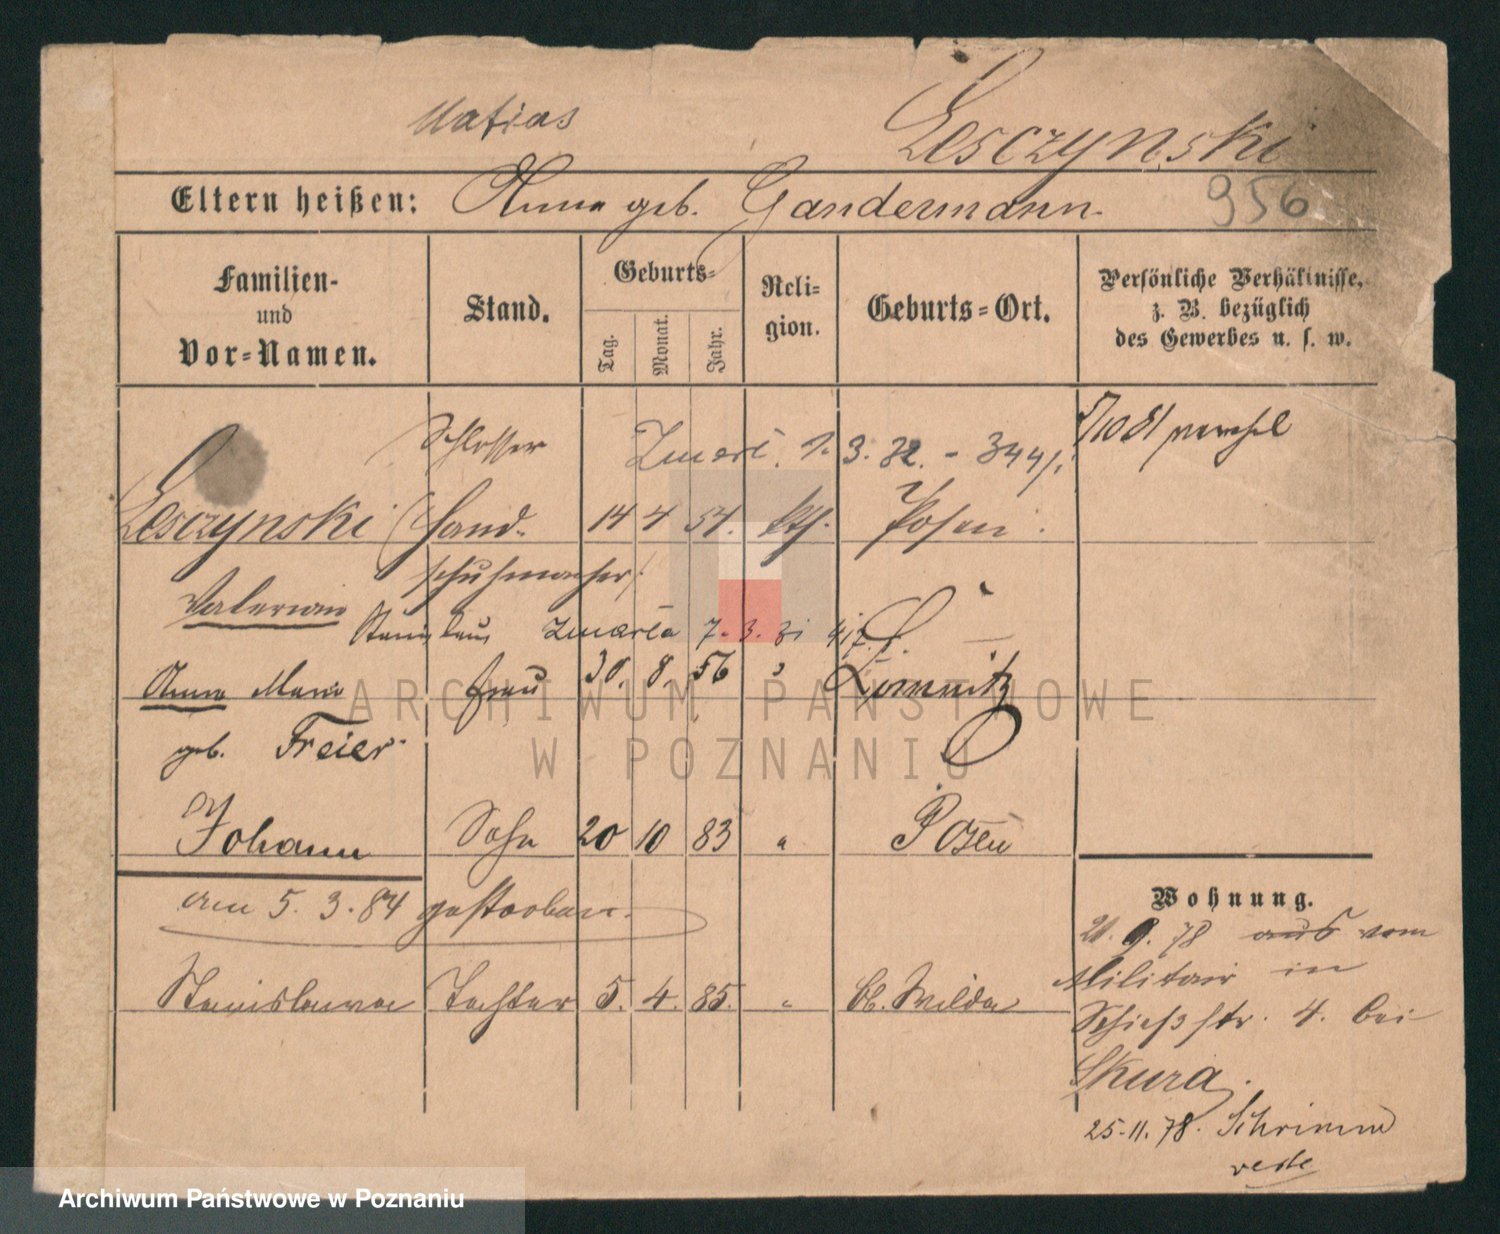 Matias Lesczynski
Eltern heißen: Anna geb. Gandermann
956
Familien-
und
Vor-Namen.
Stand.
Geburts-
Tag. Monat. Jahr.
Reli-
gion.
Geburts-Ort.
Persönliche Verhältnisse,
z. B. bezüglich
des Gewerbes u. s. w.
Schlosser Zmarł. 1. 3. 32. - 344/.
5/10 81
Lesczynski 14 4 54. kth. Posen.
Valerian Schuhmacher
Stanislaus Zmarła 7. 3. 31
Anna Maria Frau 30. 8. 56 " Lomnitz
geb. Freier
Johann Sohn 20 10 83 " Posen
am 5. 3. 84 gestorben.
Stanislawa Tochter 5. 4. 85. " Ob. Wilda
Wohnung.
21. 9. 78 aus vom
Militair in
Schießstr. 4. bei
Skura.
25.11.78. Schrimm
ARCHIWUM PAŃSTWOWE
W POZNANIU
Archiwum Państwowe w Poznaniu